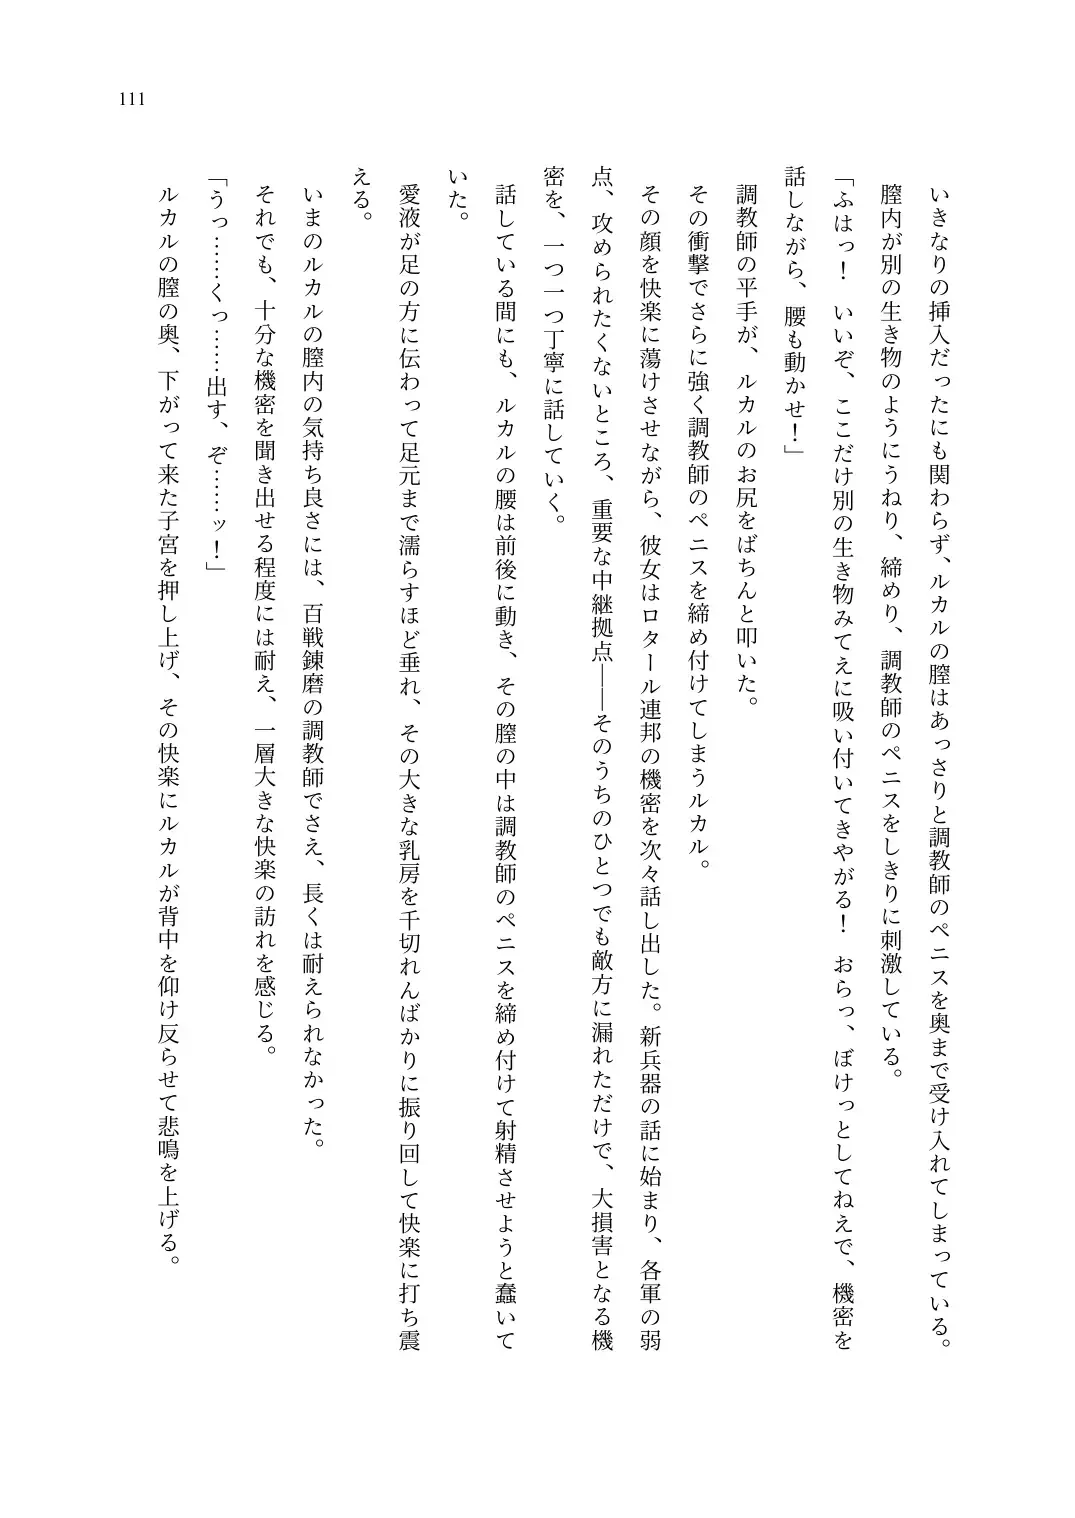 111
いきなりの挿入だったにも関わらず、ルカルの膣はあっさりと調教師のペニスを奥まで受け入れてしまっている。
膣内が別の生き物のようにうねり、締めり、調教師のペニスをしきりに刺激している。
「ふはっ！　いいぞ、ここだけ別の生き物みてえに吸い付いてきやがる！　おらっ、ぼけっとしてねえで、機密を
話しながら、腰も動かせ！」
調教師の平手が、ルカルのお尻をばちんと叩いた。
その衝撃でさらに強く調教師のペニスを締め付けてしまうルカル。
その顔を快楽に蕩けさせながら、彼女はロタール連邦の機密を次々話し出した。新兵器の話に始まり、各軍の弱
点、攻められたくないところ、重要な中継拠点――そのうちのひとつでも敵方に漏れただけで、大損害となる機
密を、一つ一つ丁寧に話していく。
話している間にも、ルカルの腰は前後に動き、その膣の中は調教師のペニスを締め付けて射精させようと蠢いて
いた。
愛液が足の方に伝わって足元まで濡らすほど垂れ、その大きな乳房を千切れんばかりに振り回して快楽に打ち震
える。
いまのルカルの膣内の気持ち良さには、百戦錬磨の調教師でさえ、長くは耐えられなかった。
それでも、十分な機密を聞き出せる程度には耐え、一層大きな快楽の訪れを感じる。
「うっ……くっ……出す、ぞ……ッ！」
ルカルの膣の奥、下がって来た子宮を押し上げ、その快楽にルカルが背中を仰け反らせて悲鳴を上げる。